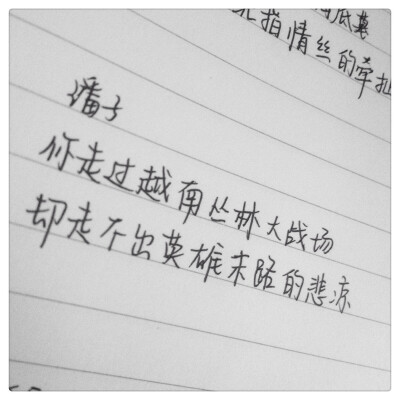 指情丝的牵扯
潘子
你走过越南丛林大战场
却走不出英雄末路的悲凉